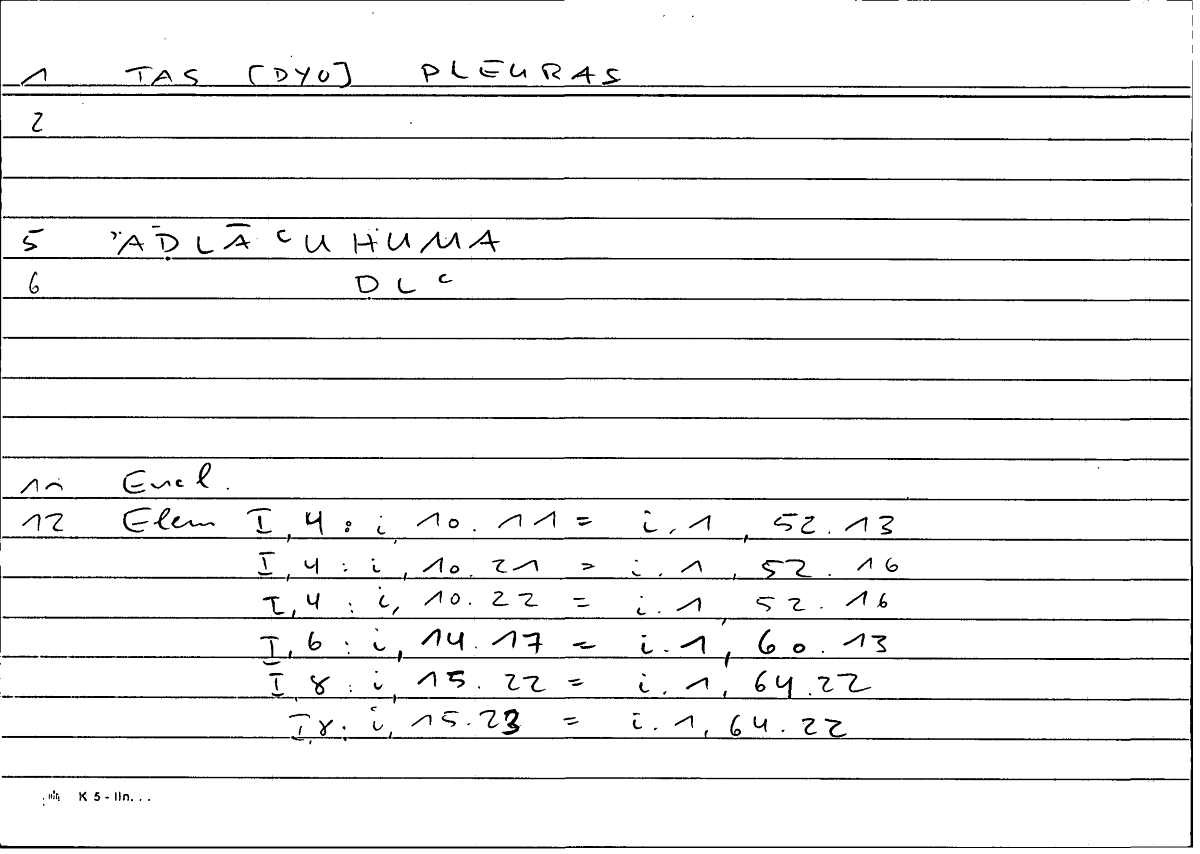 1 TAS [DYO] PLEURAS
2
5 ʾAḌLĀʿUHUMA
6 ḌLʿ
11 Eucl.
12 Elem I,4: i, 10.11 = i.1, 52.13
I,4: i, 10.21 = i.1, 52.16
I,4: i, 10.22 = i.1, 52.16
I,6: i, 14.17 = i.1, 60.13
I,8: i, 15.22 = i.1, 64.22
I,8: i, 15.23 = i.1, 64.22
K 5 - lin...